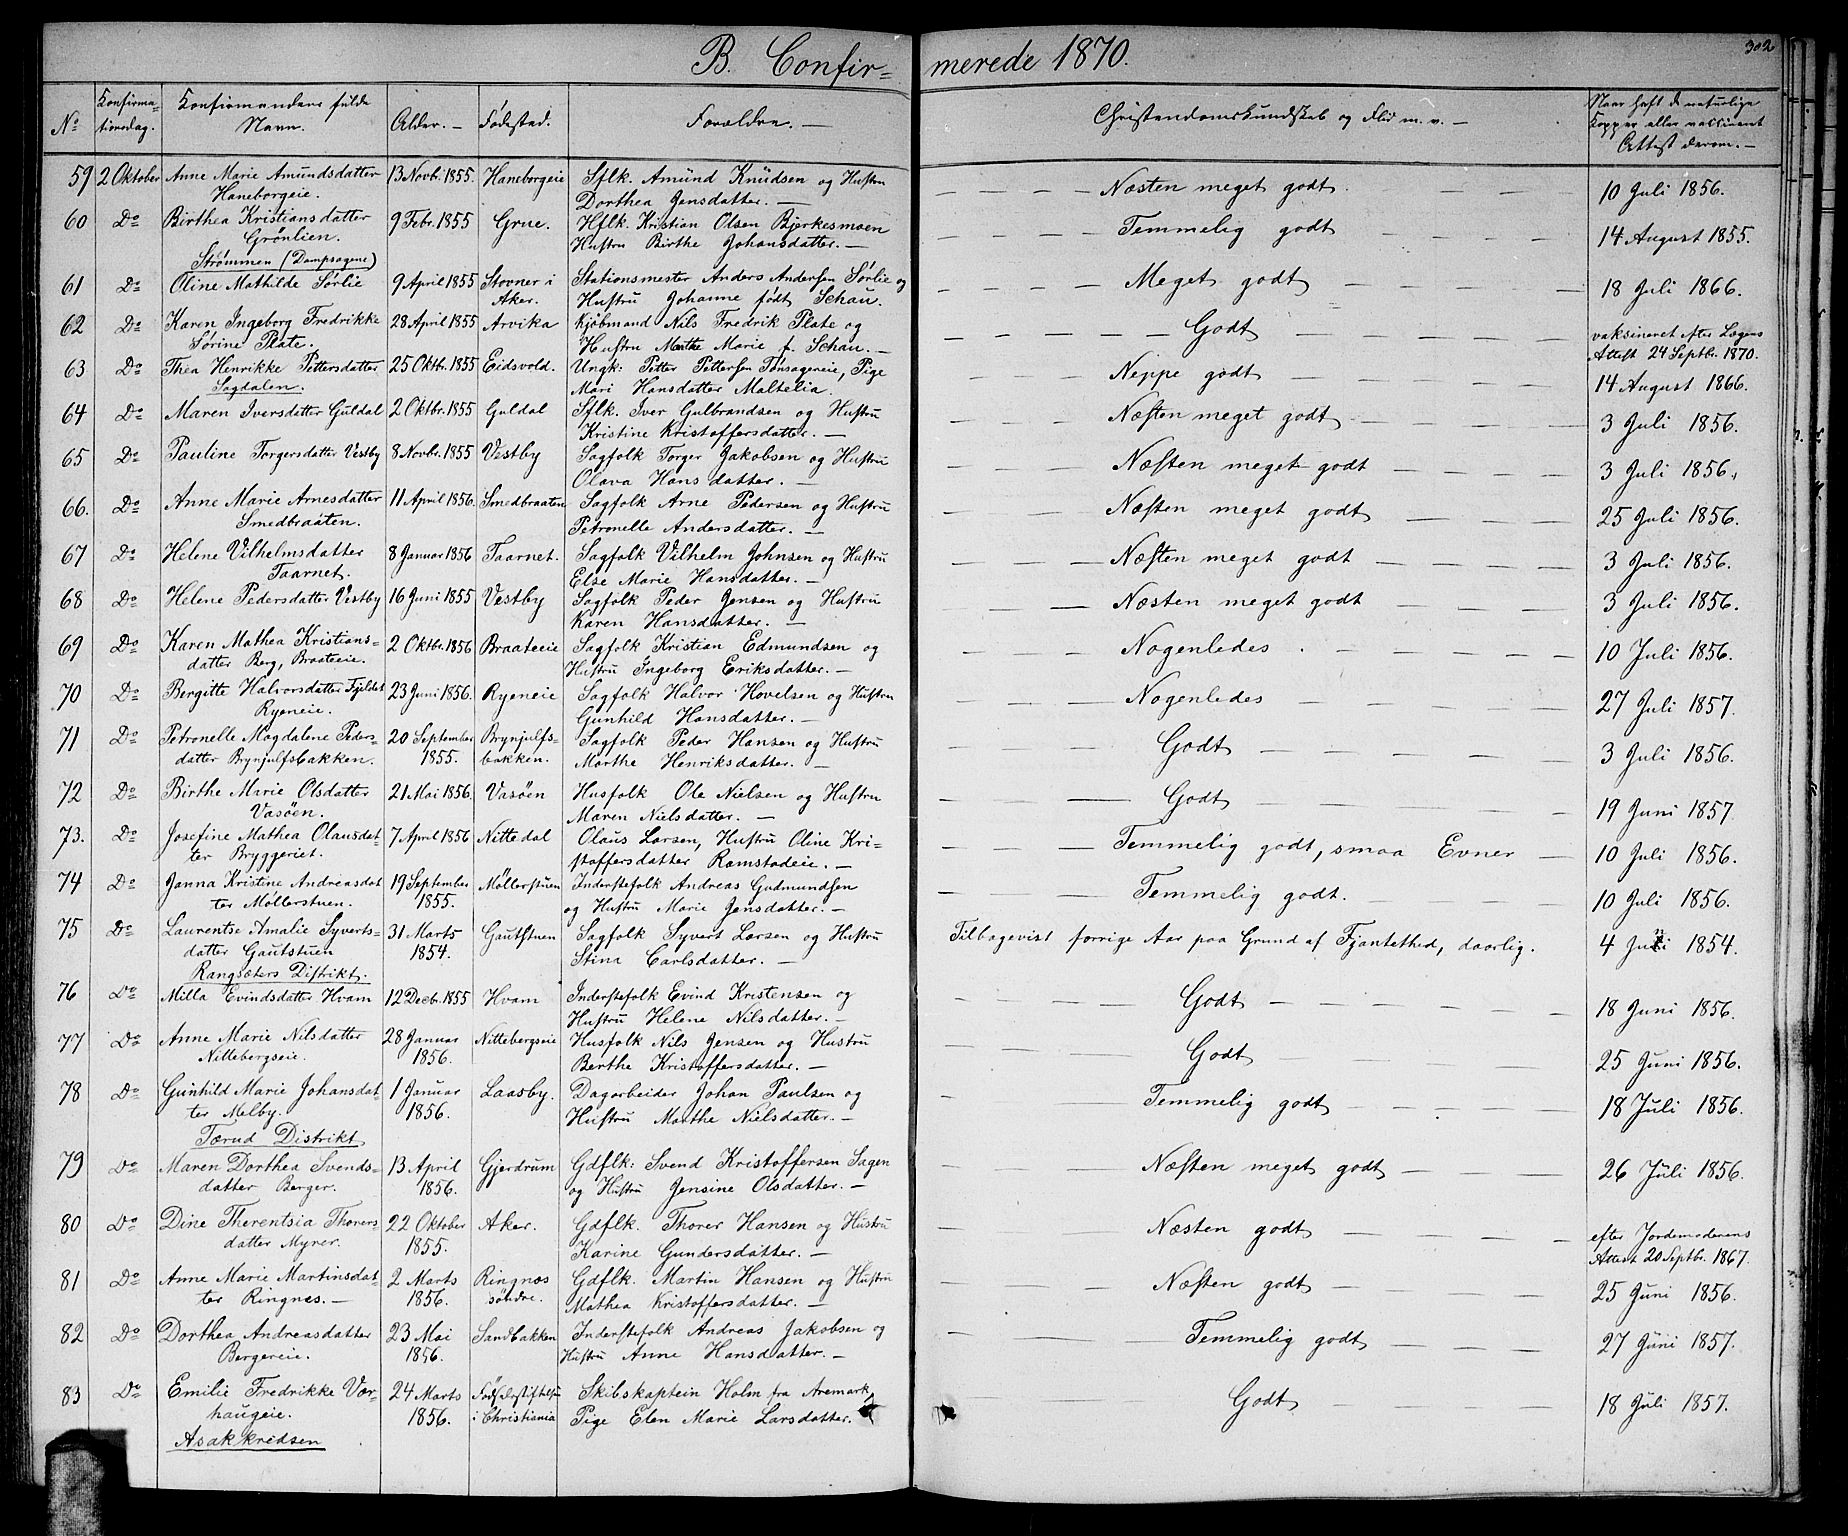 B. Confirmerede 1870.
302
No
Konfirmationsdag.
Konfirmandens fulde Navn.
Alder. —
Fødested.
Forældre. —
Christendomskundskab og Flid m. v. —
Naar haft de naturlige Kopper eller vaksineret Attest derom. —
59 2 Oktober Anne Marie Amundsdatter 13 Novbr. 1855. Haneborgeie Sflk. Amund Knudsen og Hustru — Næsten meget godt. — 10 Juli 1856.
Haneborgeie. Dorthea Jensdatter. —
60 Do Birthea Kristiansdatter 9 Febr. 1855 Grue. Hflk. Kristian Olsen Bjerkesmoen — Temmelig godt — 14 August 1855.
Grønlien. Hustru Birthe Johansdatter. —
Strømmen (Dampsagene)
61 Do Oline Mathilde Sørlie 9 April 1855 Stovner i Stationsmester Anders Andersen Sørlie og — Meget godt — 18 Juli 1866.
Aker. Hustru Johanne født Schau.
62 Do Karen Ingeborg Fredrikke 28 April 1855 Arvika Kjøbmand Nils Fredrik Plate og — Godt — vaksineret efter Lægens
Sørine Plate. Hustru Marthe Marie f. Schau. — Attest 24 Septbr. 1870.
63 Do Thea Henrikke Pettersdatter 25 Oktbr. 1855 Eidsvold. Ungk: Petter Pettersen Tønsageeie, Pige — Neppe godt — 14 August 1866.
Sagdalen. Mari Hansdatter Maltelia.
64 Do Maren Iversdatter Guldal 2 Oktbr. 1855 Guldal Sflk. Iver Gulbrandsen og Hustru — Næsten meget godt — 3 Juli 1856.
Kristine Kristoffersdatter. —
65 Do Pauline Torgersdatter Vestby 8 Novbr. 1855 Vestby Sagfolk Torger Jakobsen og Hustru — Næsten meget godt — 3 Juli 1856.
Olava Hansdatter. —
66. Do Anne Marie Arnesdatter 11 April 1856. Smedbraaten Sagfolk Arne Pedersen og Hustru — Næsten meget godt — 25 Juli 1856.
Smedbraaten. Petronelle Andersdatter. —
67 Do Helene Vilhelmsdatter 8 Januar 1856 Taarnet. Sagfolk Vilhelm Johnsen og Hustru — Næsten meget godt — 3 Juli 1856.
Taarnet. Else Marie Hansdatter. —
68 Do Helene Pedersdatter Vestby 16 Juni 1855 Vestby Sagfolk Peder Jensen og Hustru — Næsten meget godt — 3 Juli 1856.
Karen Hansdatter. —
69 Do Karen Mathea Kristians- 2 Oktbr. 1856 Braateeie Sagfolk Kristian Edmundsen og — Nogenledes. — 10 Juli 1856.
datter Berg, Braateeie. Hustru Ingeborg Eriksdatter. —
70 Do Bergitte Halvorsdatter Fjeldet 23 Juni 1856. Ryeneie Sagfolk Halvor Hovelsen og Hustru — Nogenledes — 27 Juli 1857.
Ryeneie. Gunhild Hansdatter. —
71 Do Petronelle Magdalene Peders- 20 September Brynjulfs- Sagfolk Peder Hansen og Hustru — Godt — 3 Juli 1856.
datter Brynjulfsbakken. 1855. bakken. Marthe Henriksdatter. —
72 Do Birthe Marie Olsdatter 21 Mai 1856. Vasøen Husfolk Ole Nielsen og Hustru — Godt — 19 Juni 1857.
Vasøen. Maren Nielsdatter. —
73. Do Josefine Mathea Olausdat- 7 April 1856 Nittedal Olaus Larsen, Hustru Oline Kri- — Temmelig godt, smaa Evner — 10 Juli 1856.
ter Bryggeriet. stoffersdatter Ramstadeie. —
74 Do Janna Kristine Andreasdat 19 September Møllerstuen Inderstefolk Andreas Gudmundsen — Temmelig godt. — 10 Juli 1856.
ter Møllerstuen. 1855. og Hustru Marie Jensdatter. —
75 Do Laurentse Amalie Syverts- 31 Marts Gautstuen Sagfolk Syvert Larsen og Hustru Tilbagevist forrige Aar paa Grund af Fjantethed, daarlig. 4 Juni 1854.
datter Gautstuen 1854. Stina Carlsdatter. —
Rangsæters Distrikt.
76 Do Milla Evindsdatter Hvam 12 Decbr. 1855 Hvam Inderstefolk Evind Kristensen og — Godt — 18 Juni 1856.
Hustru Helene Nilsdatter. —
77 Do Anne Marie Nilsdatter 28 Januar Nittebergseie Husfolk Nils Jensen og Hustru — Godt — 25 Juni 1856.
Nittebergseie. 1856. Berthe Kristoffersdatter. —
78 Do Gunhild Marie Johansdat- 1 Januar Laasby. Dagarbeider Johan Paulsen og — Temmelig godt — 18 Juli 1856.
ter Melby. 1856. Hustru Marthe Nielsdatter. —
Tærud Distrikt
79 Do Maren Dorthea Svends- 13 April Gjerdrum Gdflk: Svend Kristoffersen Sagen — Næsten meget godt — 26 Juli 1856.
datter Berger. 1856. og Hustru Jensine Olsdatter. —
80 Do Dine Therentsia Thorers- 22 Oktober Aker. Gdflk. Thorer Hansen og Hustru — Næsten godt — efter Jordemoderens
datter Myrer. 1855. Karine Gundersdatter. — Attest 20 Septbr. 1867.
81 Do Anne Marie Martinsdat- 2 Marts Ringnes Gdflk. Martin Hansen og Hustru — Næsten godt — 25 Juni 1856.
ter Ringnes. — 1856. søndre. Mathea Kristoffersdatter. —
82 Do Dorthea Andreasdatter 23 Mai Sandbakken Inderstefolk Andreas Jakobsen og — Temmelig godt — 27 Juni 1857.
Bergereie. 1856. Hustru Anne Hansdatter. —
83 Do Emilie Fredrikke Vor- 24 Marts Fødselsstiftelsen Skibskaptein Holm fra Aremark, — Godt — 18 Juli 1857.
haugeie. 1856. i Christiania Pige Elen Marie Larsdatter.
Asakkredsen